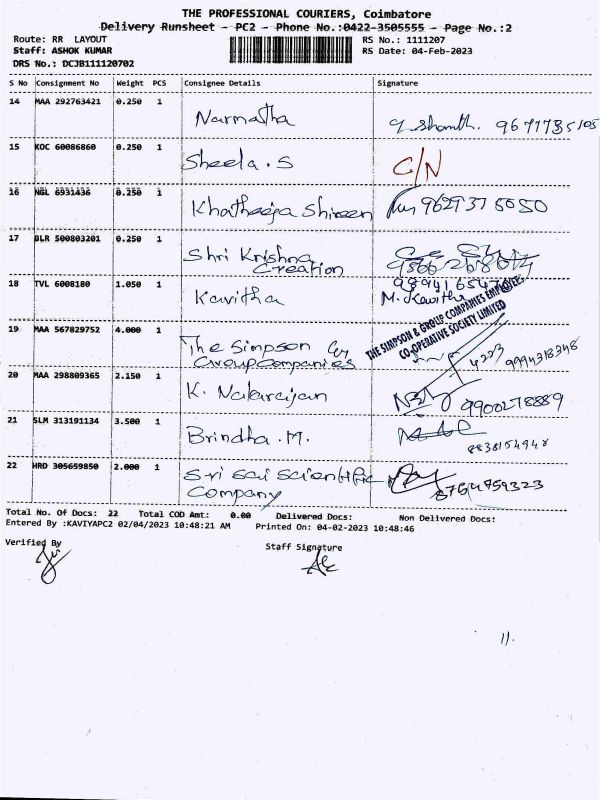 THE PROFESSIONAL COURIERS, Coimbatore
Delivery Runsheet - PC2 - Phone No.:0422-3505555 - Page No.:2
Route: RR LAYOUT RS No.: 1111207
Staff: ASHOK KUMAR RS Date: 04-Feb-2023
DRS No.: DCJB111120702
S No Consignment No Weight PCS Consignee Details Signature
14 MAA 292763421 0.250 1 Narmatha
15 KOC 60086860 0.250 1 Sheela.S C/N
16 NGL 6931436 0.250 1 Khatheeja Shireen 9629375050
17 BLR 500803201 0.250 1 Shri Krishna
Creation
18 TVL 6008180 1.050 1 Kavitha M. Kavitha
THE SIMPSON & GROUP COMPANIES EMPLOYEES
CO-OPERATIVE SOCIETY LIMITED
19 MAA 567829752 4.000 1 The Simpson
Group Companies 9994318348
20 MAA 298809365 2.150 1 K. Natarajan 9900278889
21 SLM 313191134 3.500 1 Brindha.M.
22 HRD 305659850 2.000 1 Sri Sai Scientific
Company 8754759323
Total No. Of Docs: 22 Total COD Amt: 0.00 Delivered Docs: Non Delivered Docs:
Entered By :KAVIYAPC2 02/04/2023 10:48:21 AM Printed On: 04-02-2023 10:48:46
Verified By Staff Signature
11.